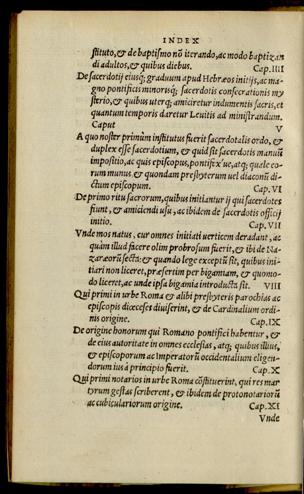 INDEX
stituto, & de baptismo nō iterando, ac modo baptizan
di adultos, & quibus diebus. Cap. IIII
De sacerdotij eiusq; graduum apud Hebræos initijs, ac ma
gno pontificis minorisq; sacerdotis consecrationis my
sterio, & quibus uterq; amiciretur indumentis sacris, et
quantum temporis daretur Leuitis ad ministrandum.
Caput V
A quo noster primùm institutus fuerit sacerdotalis ordo, &
duplex esse sacerdotium, & quid sit sacerdotis manuū
impositio, ac quis episcopus, pontifex´ue, atq; quale eo
rum munus & quondam presbyterum uel diaconū di
ctum episcopum. Cap. VI
De primo ritu sacrorum, quibus initiantur ij qui sacerdotes
fiunt, & amiciendi usu, ac ibidem de sacerdotis officij
initio. Cap. VII
Vnde mos natus, cur omnes initiati uerticem deradant, ac
quàm illud facere olim probrosum fuerit, & ibi de Na-
zaræorū secta: & quando lege exceptū sit, quibus ini-
tiari non liceret, præsertim per bigamiam, & quomo-
do liceret, ac unde ipsa bigamia introducta sit. VIII
Qui primi in urbe Roma & alibi presbyteris parochias ac
episcopis dioceses diuiserint, & de Cardinalium ordi-
nis origine. Cap. IX
De origine honorum qui Romano pontifici habentur, &
de eius autoritate in omnes ecclesias, atq; quibus illius,
& episcoporum ac Imperatorū occidentalium eligen-
dorum ius à principio fuerit. Cap. X
Qui primi notarios in urbe Roma cōstituerint, qui res mar
tyrum gestas scriberent, & ibidem de protonotariorū
ac cubiculariorum origine. Cap. XI
Vnde